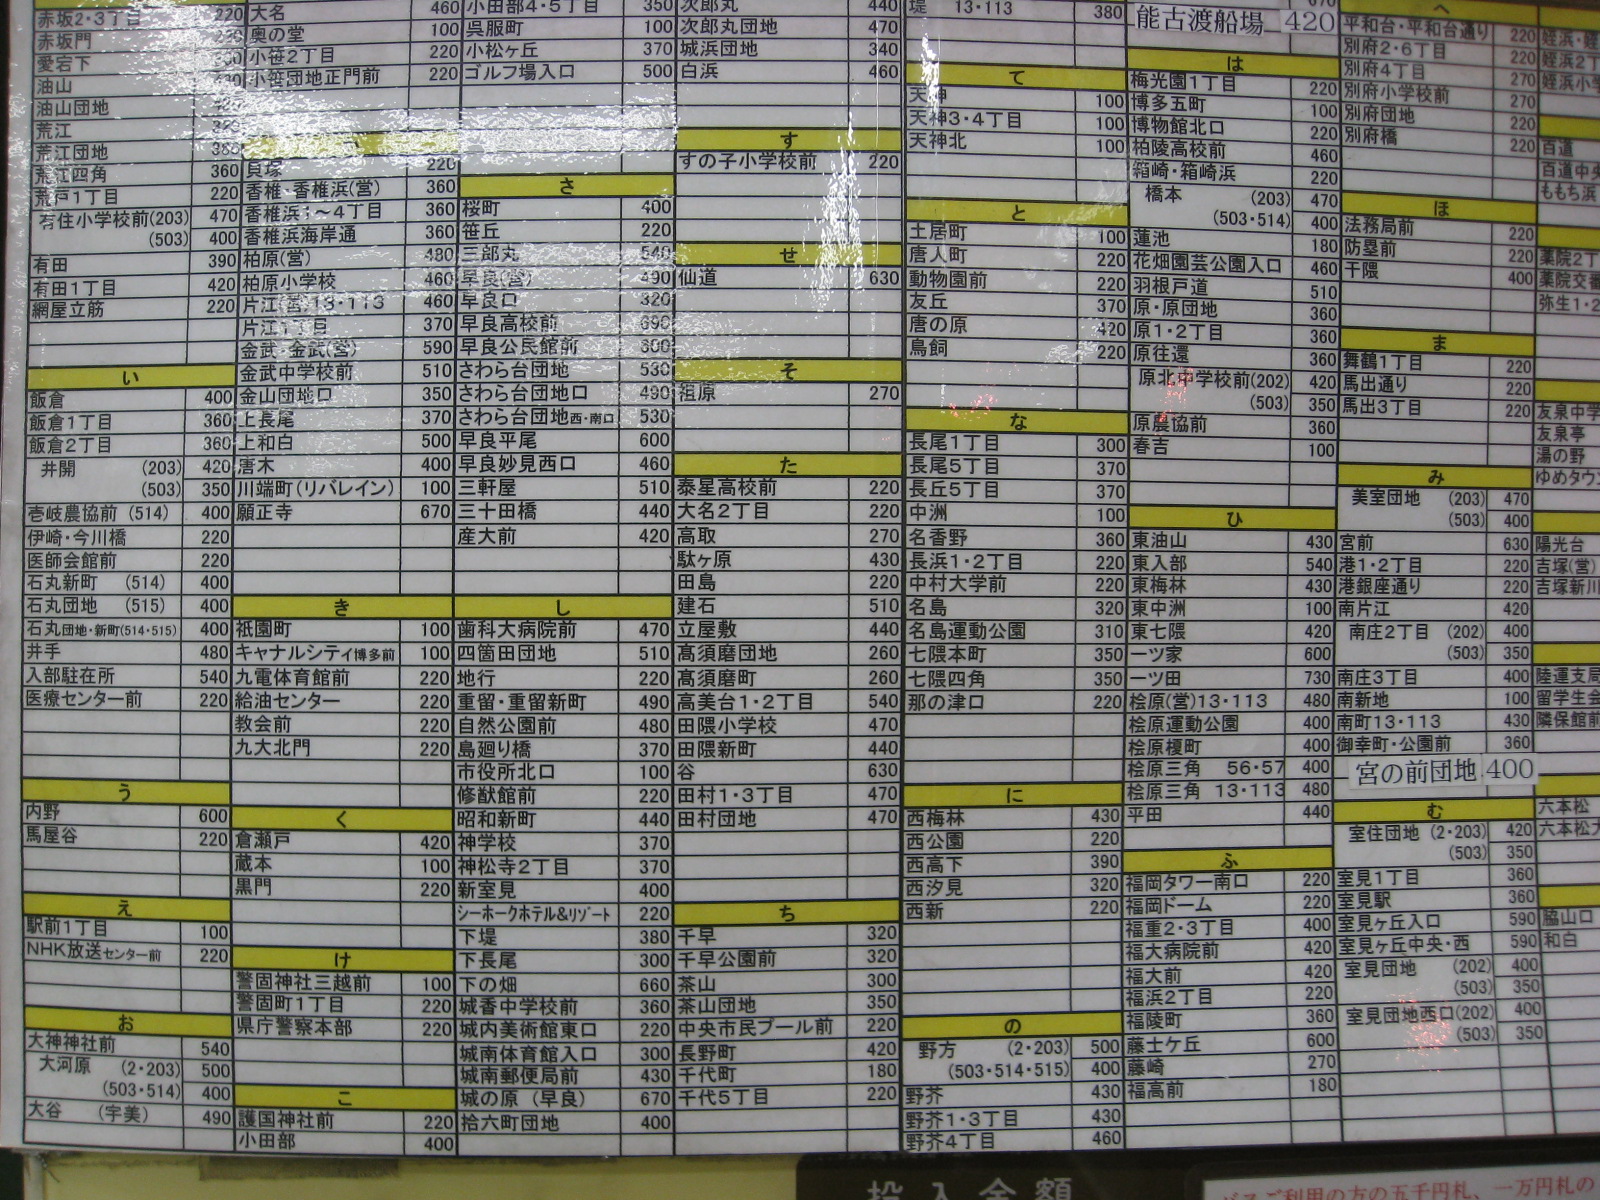 赤坂2・3丁目 220
赤坂門
愛宕下
油山
油山団地
荒江
荒江団地
荒江四角 360
荒戸1丁目 220
有住小学校前(203) 470
(503) 400
有田 390
有田1丁目 420
網屋立筋 220
い
飯倉 400
飯倉1丁目 360
飯倉2丁目 360
井開 (203) 420
(503) 350
壱岐農協前 (514) 400
伊崎・今川橋 220
医師会館前 220
石丸新町 (514) 400
石丸団地 (515) 400
石丸団地・新町(514・515) 400
井手 480
入部駐在所 540
医療センター前 220
う
内野 600
馬屋谷 220
え
駅前1丁目 100
NHK放送センター前 220
お
大神神社前 540
大河原 (2・203) 500
(503・514) 400
大谷 (宇美) 490
大名 460
奥の堂 100
小笹2丁目 220
小笹団地正門前 220
貝塚 220
香椎・香椎浜(営) 360
香椎浜1～4丁目 360
香椎浜海岸通 360
柏原(営) 480
柏原小学校 490
片江(営)13・113 460
片江1丁目 370
金武・金武(営) 590
金武中学校前 510
金山団地口 350
上長尾 370
上和白 500
唐木 400
川端町(リバレイン) 100
願正寺 670
き
祇園町 100
キャナルシティ博多前 100
九電体育館前 220
給油センター 220
教会前 220
九大北門 220
く
倉瀬戸 420
蔵本 100
黒門 220
け
警固神社三越前 100
警固町1丁目 220
県庁警察本部 220
こ
護国神社前 220
小田部 400
小田部4・5丁目 350
呉服町 100
小松ヶ丘 370
ゴルフ場入口 500
さ
桜町 400
笹丘 220
三郎丸 540
早良(営) 490
早良口 320
早良高校前 690
早良公民館前 600
さわら台団地 530
さわら台団地口 490
さわら台団地西・南口 530
早良平尾 600
早良妙見西口 460
三軒屋 510
三十田橋 440
産大前 420
し
歯科大病院前 470
四箇田団地 510
地行 220
重留・重留新町 490
自然公園前 480
島廻り橋 370
市役所北口 100
修猷館前 220
昭和新町 440
神学校 370
神松寺2丁目 370
新室見 400
シーホークホテル&リゾート 220
下堤 380
下長尾 300
下の畑 660
城香中学校前 360
城内美術館東口 220
城南体育館入口 300
城南郵便局前 430
城の原 (早良) 670
拾六町団地 400
次郎丸 440
次郎丸団地 470
城浜団地 340
白浜 460
す
すの子小学校前 220
せ
仙道 630
そ
祖原 270
た
泰星高校前 220
大名2丁目 220
高取 270
駄ヶ原 430
田島 220
建石 510
立屋敷 440
高須磨団地 260
高須磨町 260
高美台1・2丁目 540
田隈小学校 470
田隈新町 440
谷 630
田村1・3丁目 470
田村団地 470
ち
千早 320
千早公園前 320
茶山 300
茶山団地 350
中央市民プール前 220
長野町 420
千代町 180
千代5丁目 220
堤 13・113 380
て
天神 100
天神3・4丁目 100
天神北 100
と
土居町 100
唐人町 220
動物園前 220
友丘 370
唐の原 420
鳥飼 220
な
長尾1丁目 300
長尾5丁目 370
長丘5丁目 370
中洲 100
名香野 360
長浜1・2丁目 220
中村大学前 220
名島 320
名島運動公園 310
七隈本町 350
七隈四角 350
那の津口 220
に
西梅林 430
西公園 220
西高下 390
西汐見 320
西新 220
の
野方 (2・203) 500
(503・514・515) 400
野芥 430
野芥1・3丁目 430
野芥4丁目 460
能古渡船場 420
は
梅光園1丁目 220
博多五町 100
博物館北口 220
柏陵高校前 460
箱崎・箱崎浜 220
橋本 (203) 470
(503・514) 400
蓮池 180
花畑園芸公園入口 460
羽根戸道 510
原・原団地 360
原1・2丁目 360
原往還 360
原北中学校前(202) 420
(503) 350
原農協前 360
春吉 100
ひ
東油山 430
東入部 540
東梅林 430
東中洲 100
東七隈 420
一ツ家 600
一ツ田 730
桧原(営)13・113 480
桧原運動公園 400
桧原榎町 400
桧原三角 56・57 400
桧原三角 13・113 480
平田 440
ふ
福岡タワー南口 220
福岡ドーム 220
福重2・3丁目 400
福大病院前 420
福大前 420
福浜2丁目 220
福陵町 360
藤士ケ丘 600
藤崎 270
福高前 180
へ
平和台・平和台通り 220
別府2・6丁目 220
別府4丁目 270
別府小学校前 270
別府団地 220
別府橋 220
ほ
法務局前 220
防塁前 220
干隈 400
ま
舞鶴1丁目 220
馬出通り 220
馬出3丁目 220
み
美室団地 (203) 470
(503) 400
宮前 630
港1・2丁目 220
港銀座通り 220
南片江 420
南庄2丁目 (202) 400
(503) 350
南庄3丁目 400
南新地 100
南町13・113 430
御幸町・公園前 360
宮の前団地 400
む
室住団地 (2・203) 420
(503) 350
室見1丁目 360
室見駅 360
室見ヶ丘入口 590
室見ヶ丘中央・西 590
室見団地 (202) 400
(503) 350
室見団地西口(202) 400
(503) 350
姪浜・姪
姪浜2丁
姪浜小学
百道
百道中央
ももち浜
薬院2丁
薬院交番
弥生1・2
友泉中学
友泉亭
湯の野
ゆめタウン
陽光台
吉塚(営)
吉塚新川
陸運支局
留学生会
隣保館前
六本松
六本松大
脇山口
和白
投入金額
バスご利用の方の五千円札、一万円札の